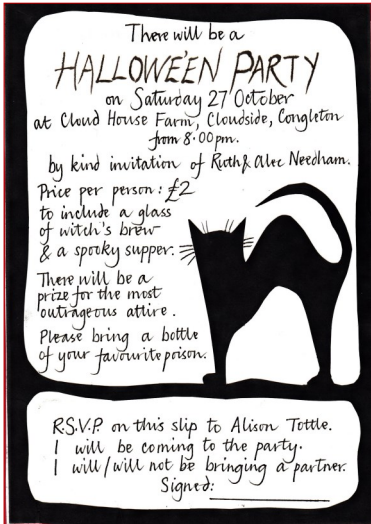 There will be a
HALLOWE'EN PARTY
on Saturday 27 October
at Cloud House Farm, Cloudside, Congleton
from 8.00 pm.
by kind invitation of Ruth & Alec Needham.
Price per person: £2
to include a glass
of witch's brew
& a spooky supper.
There will be a
prize for the most
outrageous attire.
Please bring a bottle
of your favourite poison.
R.S.V.P. on this slip to Alison Tottle.
I will be coming to the party.
I will/will not be bringing a partner.
Signed: